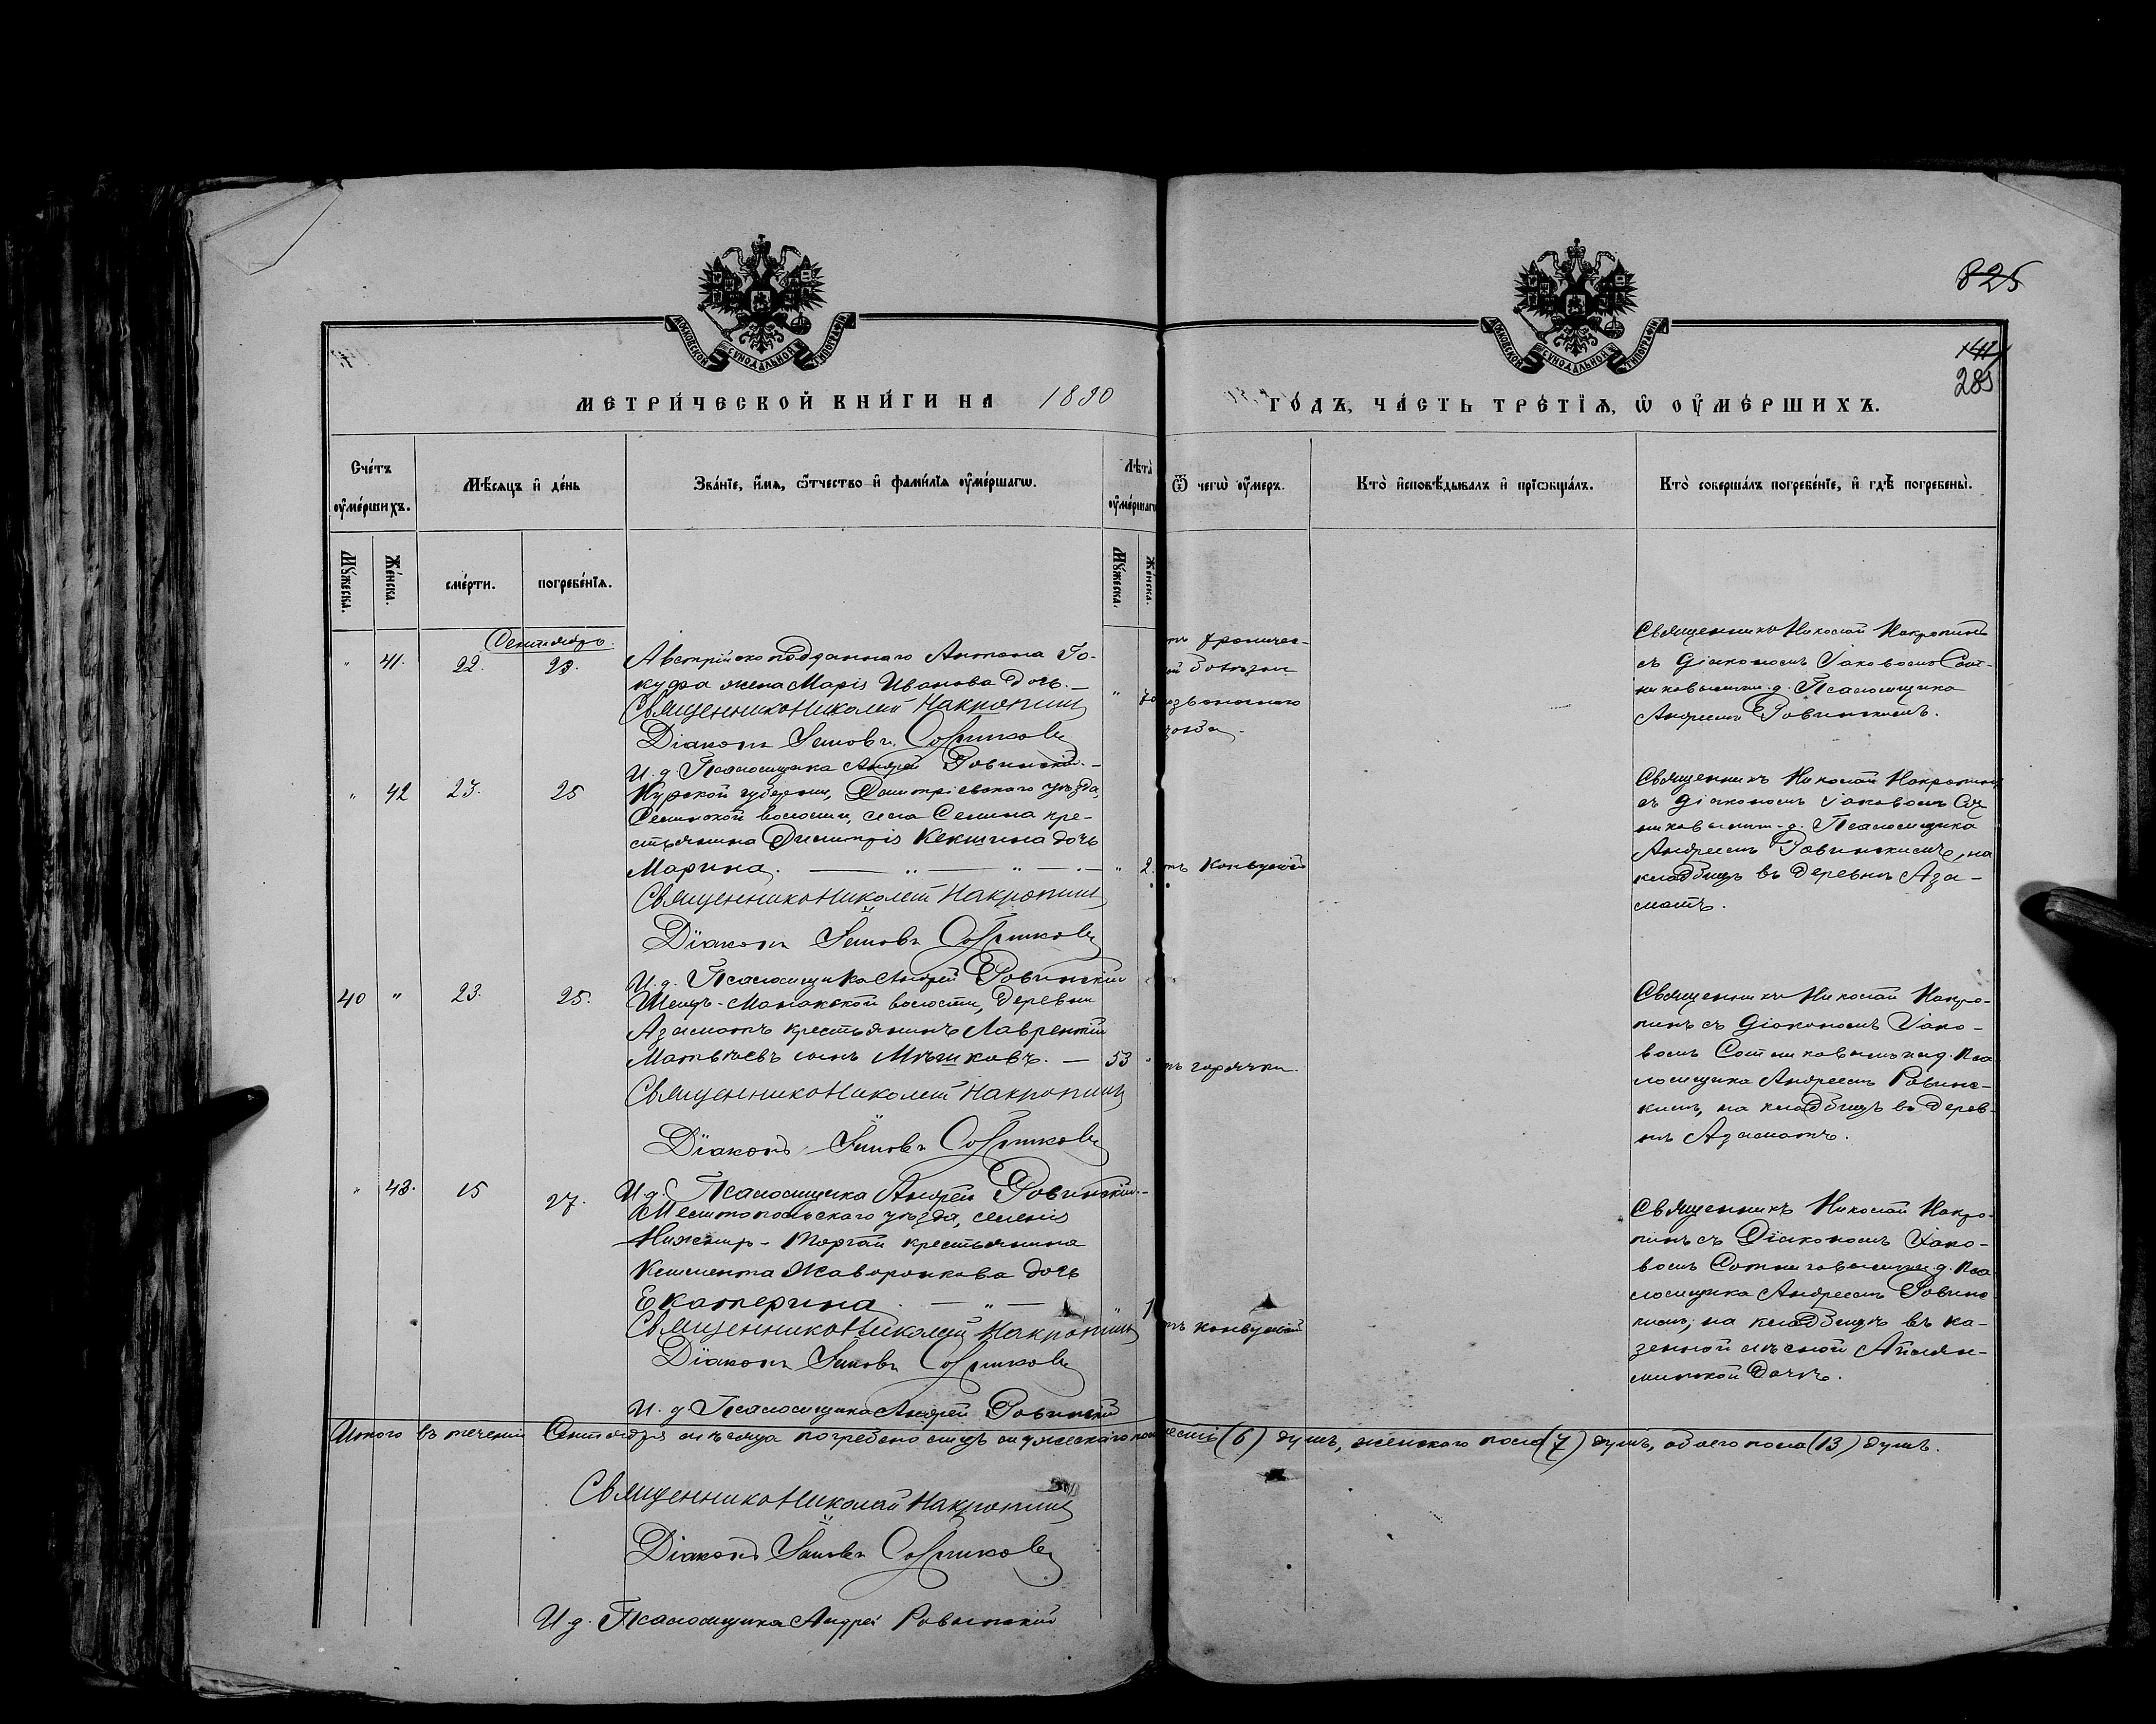 825
141
285
МОСКОВСКОЙ СѴНОДАЛЬНОЙ ТИПОГРАФІИ
МОСКОВСКОЙ СѴНОДАЛЬНОЙ ТИПОГРАФІИ
МЕТРИ́ЧЕСКОЙ КНИ́ГИ НА 1890 ГО́ДЪ, ЧА́СТЬ ТРЕ́ТІѦ, Ѡ҆ ОУ҆МЕ́РШИХЪ.
Сче́тъ оу҆ме́ршихъ.
Мѣ́сѧцъ и҆ де́нь
Зва́нїе, и҆́мѧ, ѻ҆́тчество и҆ фами́лїѧ оу҆ме́ршагѡ.
Лѣта̀ оу҆ме́ршагѡ
Ѿ чегѡ̀ оу҆́меръ.
Кто̀ и҆сповѣ́дывалъ и҆ прїѡбща́лъ.
Кто̀ соверша́лъ погребе́нїе, и҆ гдѣ̀ погребены̀.
Мꙋ́жеска.
Же́нска.
сме́рти.
погребе́нїѧ.
Мꙋ́жеска.
Же́нска.
Сентябрь.
" 41. 22. 23.
Австрійскоподданнаго Антона Го-
куфа жена Марія Иванова дочь. — " 70
Священникъ Николай Накропинъ
Діаконъ Іаковъ Сотниковъ
И. д. Псаломщика Андрей Ровинскій. —
тъ хроничес-
ой болѣзни
позвоночнаго
Священникъ Николай Накропинъ
съ діакономъ Іаковомъ Сот-
никовымъ и. д. Псаломщика
Андреемъ Ровинскимъ.
" 42 23. 25
Курской губерніи, Дмитріевскаго уѣзда,
волости, села Селина кре-
стьянина Димитрія Кекшина дочь
Марина. — " — " — " 2. тъ конвульсій
Священникъ Николай Накропинъ
Діаконъ Іаковъ Сотниковъ
И. д. Псаломщика Андрей Ровинскій
Священникъ Николай Накропинъ
съ діакономъ Іаковомъ Сот-
никовымъ и. д. Псаломщика
Андреемъ Ровинскимъ, на
кладбищѣ въ деревнѣ Аза-
матъ.
40 " 23. 25.
Шеихъ-Манакской волости, деревни
Азаматъ крестьянинъ Лаврентій
Матвѣевъ сынъ Мѣшковъ. — 53 " тъ горячки.
Священникъ Николай Накропинъ
Діаконъ Іаковъ Сотниковъ
И. д. Псаломщика Андрей Ровинскій. —
Священникъ Николай Накро-
пинъ съ діакономъ Іако-
вомъ Сотниковымъ и. д. пса-
ломщика Андреемъ Ровинс-
кимъ, на кладбищѣ въ дерев-
нѣ Азаматъ.
" 43. 15 27.
Мелитопольскаго уѣзда, селенія
Нижнихъ-Торгай крестьянина
Климента Жаворонкова дочь
Екатерина. — " — " 1 тъ конвульсій
Священникъ Николай Накропинъ
Діаконъ Іаковъ Сотниковъ
И. д. Псаломщика Андрей Ровинскій
Священникъ Николай Накро-
пинъ съ Діакономъ Іако-
вомъ Сотниковымъ и. д. пса-
ломщика Андреемъ Ровинс-
кимъ, на кладбищѣ въ ка-
зенной лѣсной
дачѣ.
Итого въ теченіи Сентября мѣсяца погребено лицъ мужескаго пола шесть (6) душъ, женскаго пола (7) душъ, обоего пола (13) душъ.
Священникъ Николай Накропинъ
Діаконъ Іаковъ Сотниковъ
И. д. Псаломщика Андрей Ровинскій